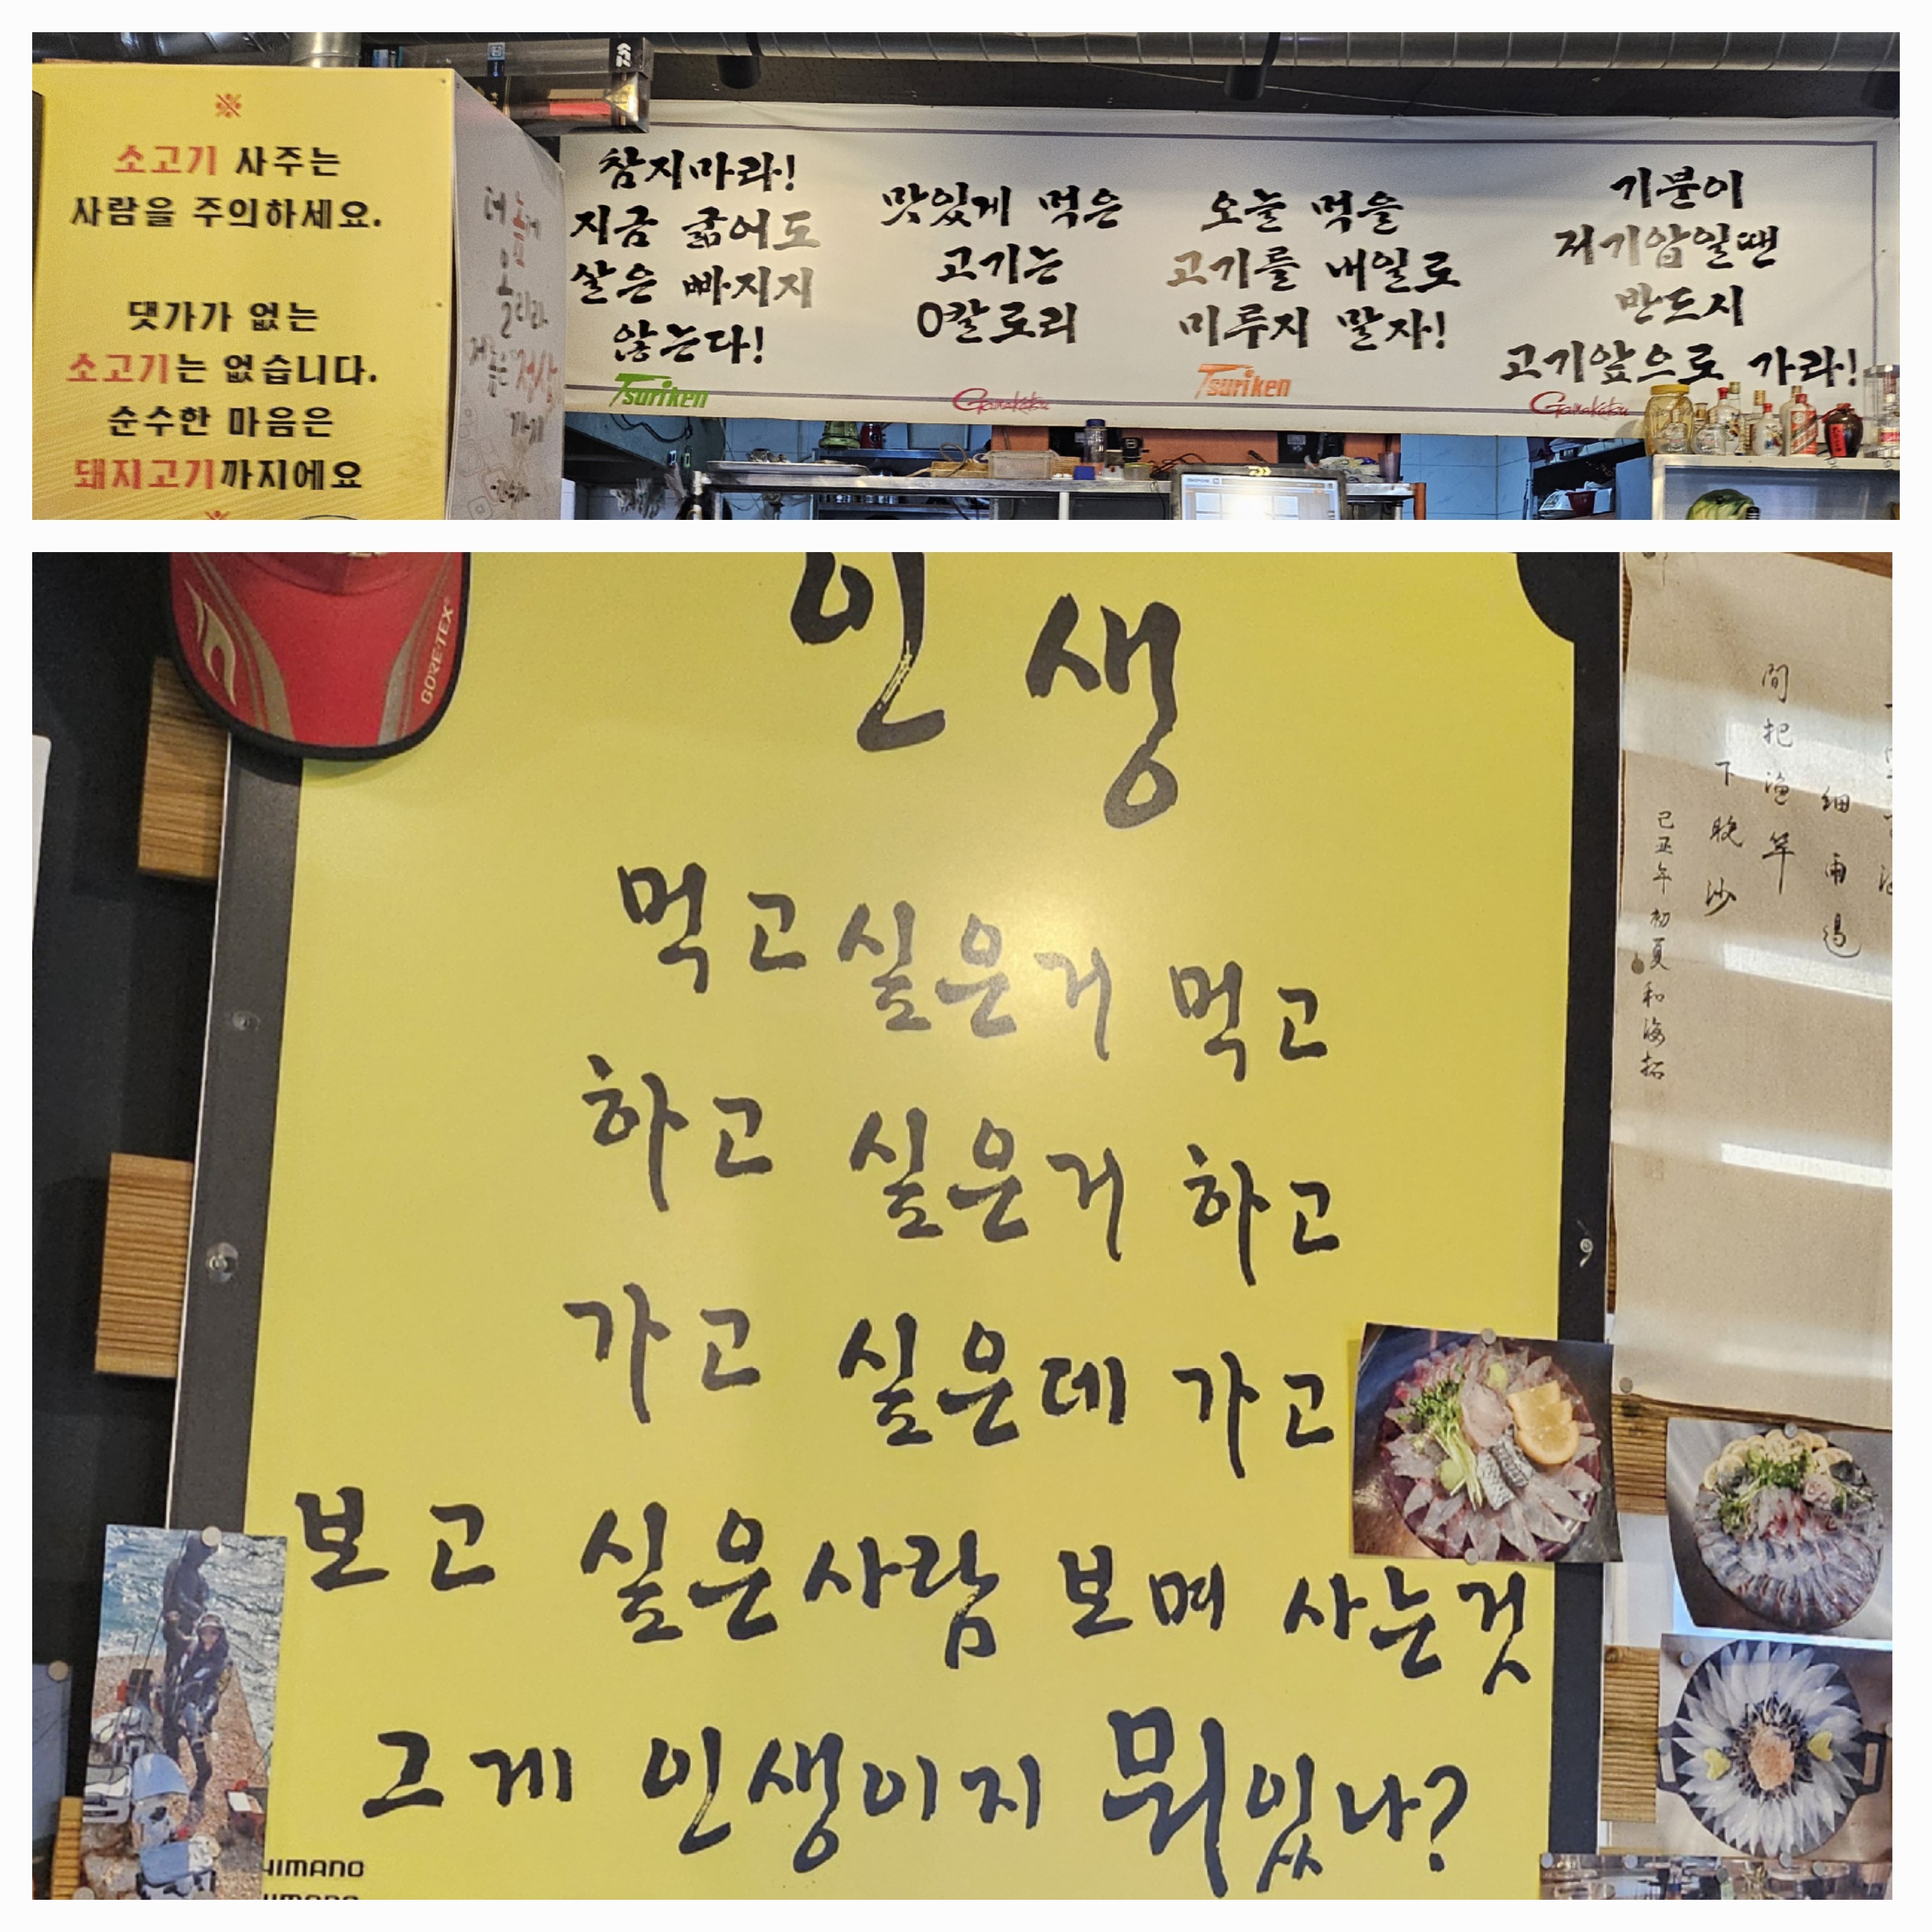 ※
소고기 사주는
사람을 주의하세요.
댓가가 없는
소고기는 없습니다.
순수한 마음은
돼지고기까지에요
※
참지마라!
지금 굶어도
살은 빠지지
않는다!
Tsuriken
맛있게 먹은
고기는
0칼로리
Gamakatsu
오늘 먹을
고기를 내일로
미루지 말자!
Tsuriken
기분이
저기압일땐
반드시
고기앞으로 가라!
Gamakatsu
GORE-TEX
인생
먹고싶은거 먹고
하고 싶은거 하고
가고 싶은데 가고
보고 싶은사람 보며 사는것
그게 인생이지 뭐있나?
HIMANO
細雨
間把漁竿
下晚沙
己丑年初夏